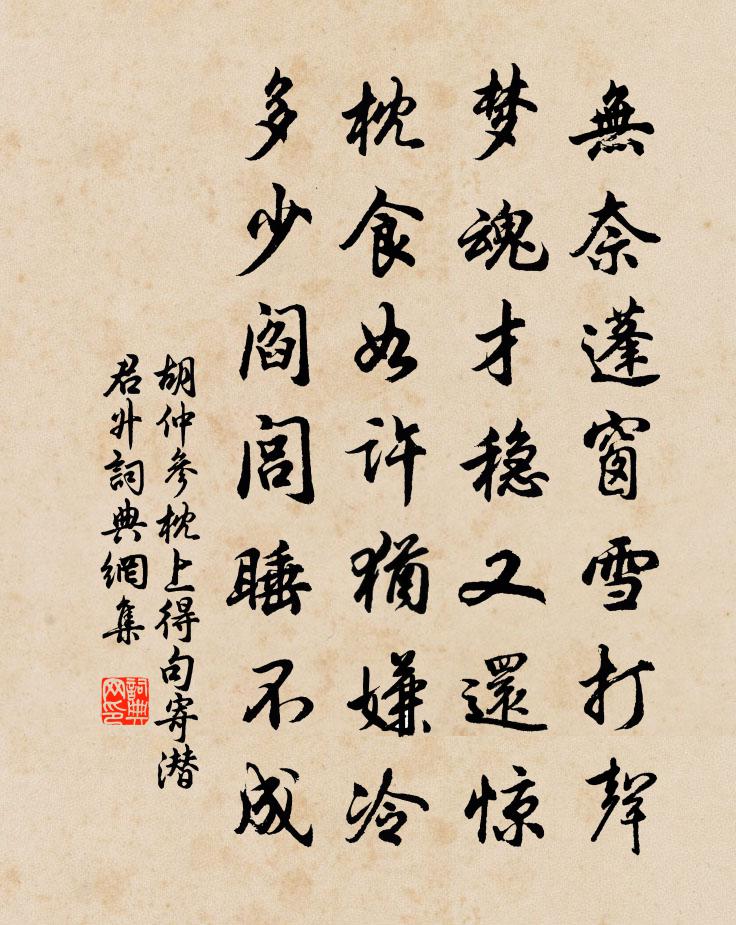 無奈蓬窗雪打聲
梦魂才稳又還惊
枕食如许猶嫌冷
多少阎闾睡不成
胡仲參枕上得句寄潜
君升詞典網集
詞典网印